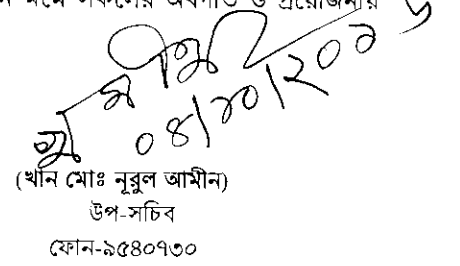 মর্মে সকলের অবগতি ও প্রয়োজনীয়
০৪/১০/২০১৬
(খান মোঃ নূরুল আমীন)
উপ-সচিব
ফোন-৯৫৪০৭৩০